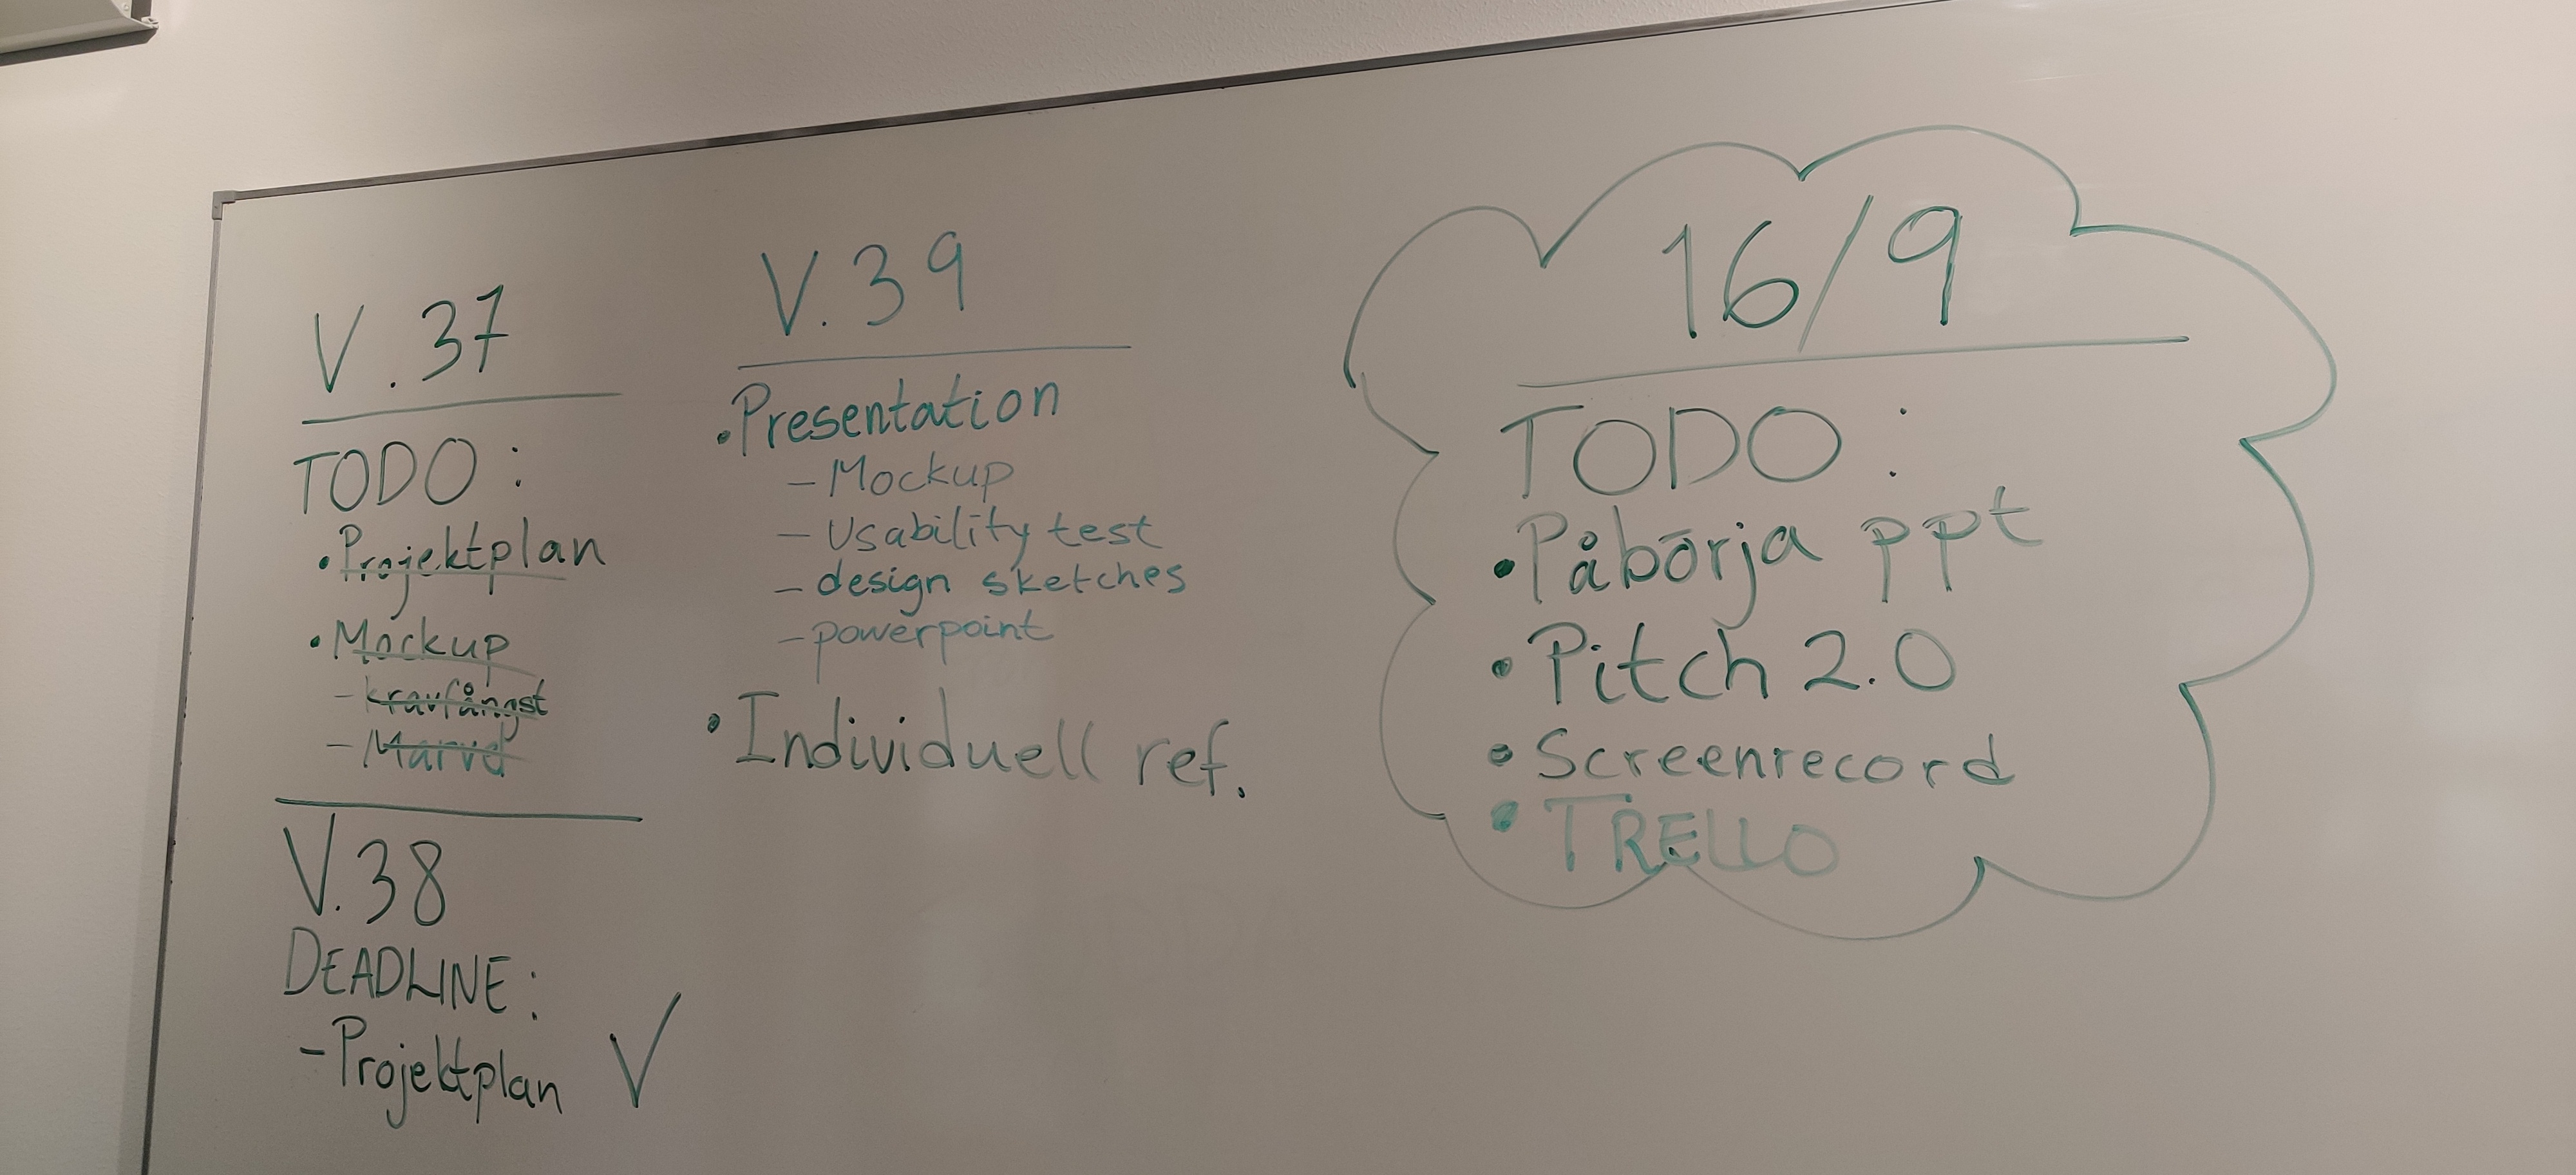 V.37
TODO:
• Projektplan
• Mockup
- kravfångst
- Marvel
V.38
DEADLINE:
- Projektplan ✓
V.39
• Presentation
- Mockup
- Usability test
- design sketches
- powerpoint
• Individuell ref.
16/9
TODO:
• Påbörja ppt
• Pitch 2.0
• Screenrecord
• TRELLO